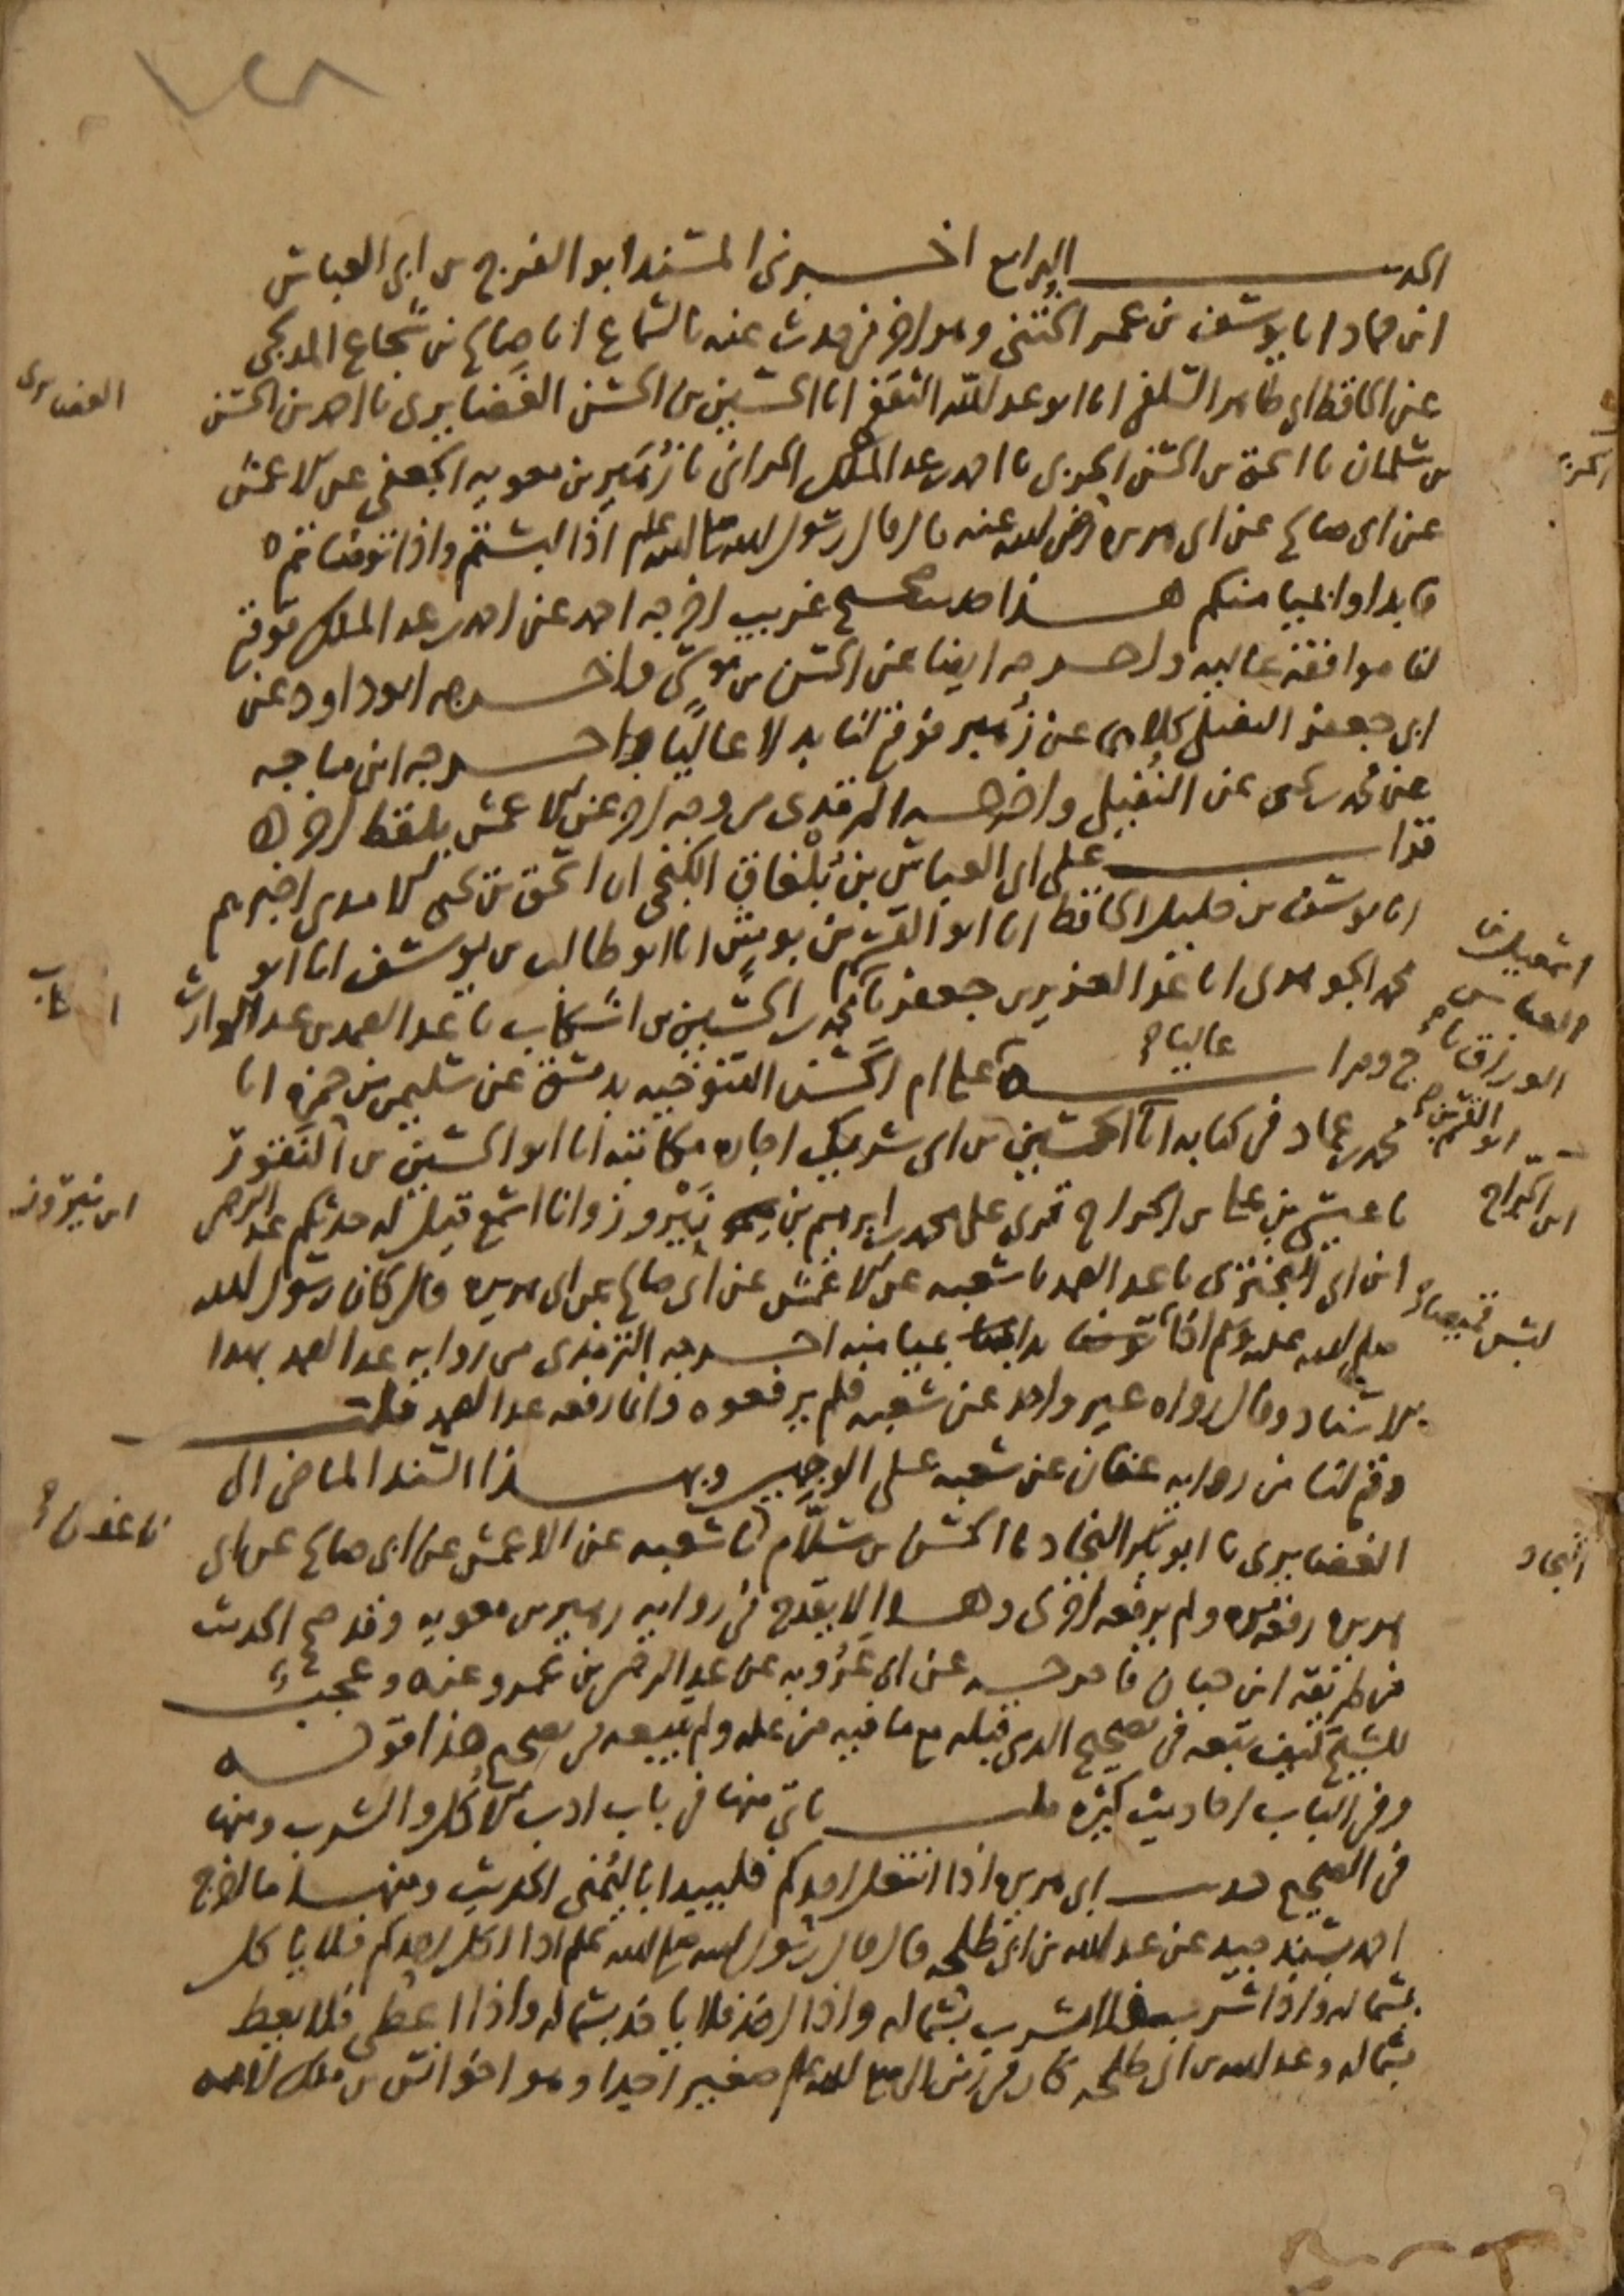 ١٢٨
الحديث الرابع اخبرني المسند ابو الفرج بن ابي العباس
ابن حماد انا يوسف بن عمر الختني وهو اخر من حدث عنه بالسماع انا صالح بن شجاع المدلجي
عن الحافظ ابي طاهر السلفي انا ابو عبد الله الثقفي انا الحسين بن الحسن الغضايري نا احمد بن الحسن
بن سلمان نا اسحق بن الحسن الحربي نا احمد بن عبد الملك الحراني نا زهير بن معويه الجعفي عن الاعمش
عن ابي صالح عن ابي هريره رضي الله عنه قال قال رسول الله صلى الله عليه وسلم اذا لبستم واذا توضاتم
فابداوا بميامنكم هذا حديث صحيح غريب اخرجه احمد عن احمد بن عبد الملك فوقع
لنا موافقة عاليه واخرجه ايضا عن الحسن بن موسى واخرجه ابو داود عن
ابي جعفر النفيلي كلاهما عن زهير فوقع لنا بدلا عاليا واخرجه ابن ماجه
عن محمد بن يحيى عن النفيلي واخرجه الترمذي من وجه اخر عن الاعمش بلفظ اخر
قرات على ابي العباس بن بلغاق الكنجي ان اسحق بن يحيى الامدي اخبرهم
انا يوسف بن خليل الحافظ انا ابو القسم بن بوش انا ابو طالب بن يوسف انا ابو
محمد الجوهري انا عبد العزيز بن جعفر نا محمد بن الحسين بن اشكاب نا عبد الصمد بن عبد الوارث
ح وقرات عاليا على ام الحسن التنوخيه بدمشق عن سليمن بن حمزه انا
محمد بن عماد في كتابه انا الحسين بن ابي شريك اجازه مكاتبه انا ابو الحسين بن النقور
نا عيسى بن علي بن الجراح قرى على محمد بن ابرهيم بن نيروز وانا اسمع قيل له حدثكم عبد الرحمن
ابن ابي البختري نا عبد الصمد نا شعبه عن الاعمش عن ابي صالح عن ابي هريره قال كان رسول الله
صلى الله عليه وسلم اذا بدا بميامنه اخرجه الترمذي من روايه عبد الصمد بهذا
الاسناد وقال رواه غير واحد عن شعبه فلم يرفعوه وانما رفعه عبد الصمد قلت
وقع لنا من روايه عفان عن شعبه على الوجهين وبهذا السند الماضي الى
الغضايري نا ابو بكر النجاد نا الحسن بن سلام نا شعبه عن الاعمش عن ابي صالح عن ابي
هريره رفعه مره ولم يرفعه اخرى وهذا لا يقدح في روايه زهير بن معويه وقد صح الحديث
من طريقه ابن حبان فاخرجه عن ابي عروبه عن عبد الرحمن بن عمرو عنه وعجبت
للشيخ كيف تبعه في تصحيح الذي قبله مع ما فيه من عله ولم يتبعه في تصحيح هذا قوله
وفي الباب احاديث كثيره قلت ياتي منها في باب ادب الاكل والشرب ومنها
في الصحيح حديث ابي هريره اذا انتعل احدكم فليبدا باليمنى الحديث ومنها ما اخرج
احمد بسند جيد عن عبد الله بن ابي طلحه قال قال رسول الله صلى الله عليه وسلم اذا اكل احدكم فلا ياكل
بشماله واذا شرب فلا يشرب بشماله واذا اخذ فلا ياخذ بشماله واذا اعطى فلا يعط
بشماله وعبد الله بن ابي طلحه كان في زمن النبي صلى الله عليه وسلم صغيرا جدا وهو اخو انس بن ملك لامه
الغضايري
اسمعيل بن
العباس
الوراق نا
ابو القسم بن
ابن الجراح
لبس قميصا
اشكاب
ابن نيروز
نا عفان
النجاد